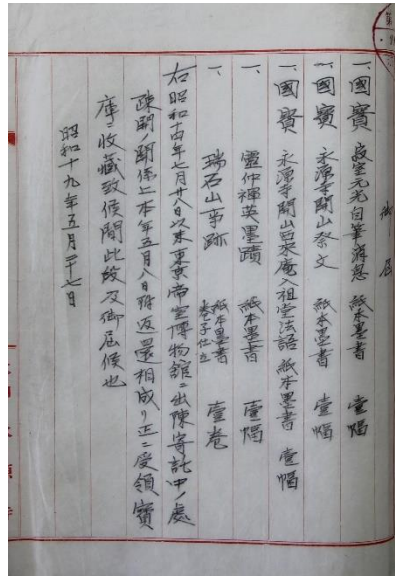 御届
一、國寳 寂室元光自筆消息 紙本墨書 壹幅
一、國寳 永源寺開山祭文 紙本墨書 壹幅
一、國寳 永源寺開山西來庵入祖堂法語 紙本墨書 壹幅
一、靈仲禅英墨蹟 紙本墨書 壹幅
一、瑞石山事跡 紙本墨書 巻子仕立 壹巻
右昭和十四年七月廿八日以来東京帝室博物館ニ出陳寄託中ノ處
疎開ノ関係上本年五月八日附返還相成リ正ニ受領寳
庫ニ收藏致候間此段及御届候也
昭和十九年五月二十七日